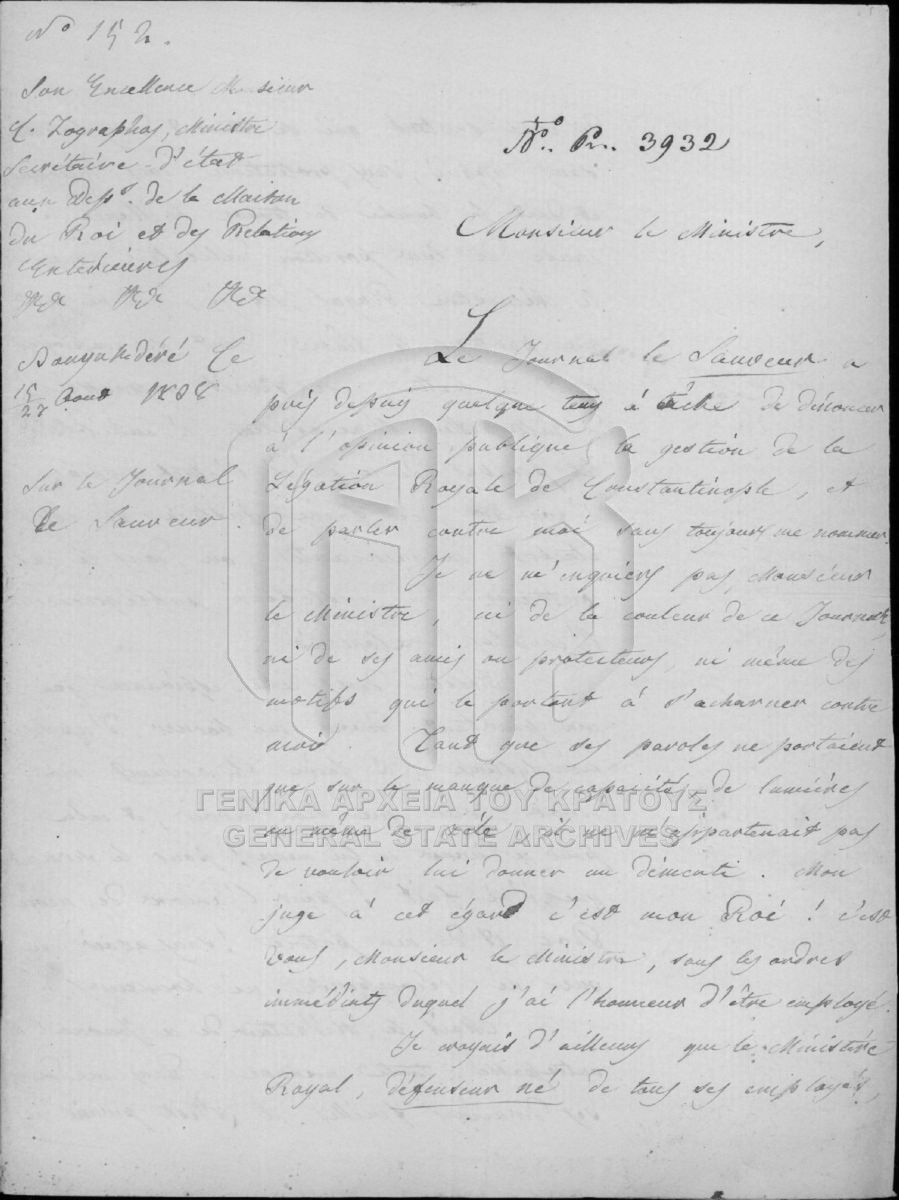 No 152.
Son Excellence Monsieur
C. Zographos, Ministre
Secrétaire d'état
aux Depts. de la Maison
du Roi et des Relations
Extérieures
No. Pr. 3932
Monsieur le Ministre,
Bouyukdéré le
15/27 Aout 1838
Sur le Journal
Le Sauveur.
Le Journal le Sauveur a
pris depuis quelque tems à tâche de dénoncer
à l'opinion publique la gestion de la
Légation Royale de Constantinople, et
de parler contre moi sans toujours me nommer.
Je ne m'enquiers pas, Monsieur
le Ministre, ni de la couleur de ce Journal,
ni de ses amis ou protecteurs, ni même des
motifs qui le portent à s'acharner contre
moi. Tant que ses paroles ne portaient
que sur le manque de capacités, de lumières
ou même de zéle, il ne m'appartenait pas
de vouloir lui donner un démenti. Mon
juge à cet égard c'est mon Roi! c'est
Vous, Monsieur le Ministre, sous les ordres
immédiats duquel j'ai l'honneur d'être employé.
Je croyais d'ailleurs que le Ministère
Royal, défenseur né de tous ses employés,
ΓΕΝΙΚΑ ΑΡΧΕΙΑ ΤΟΥ ΚΡΑΤΟΥΣ
GENERAL STATE ARCHIVES